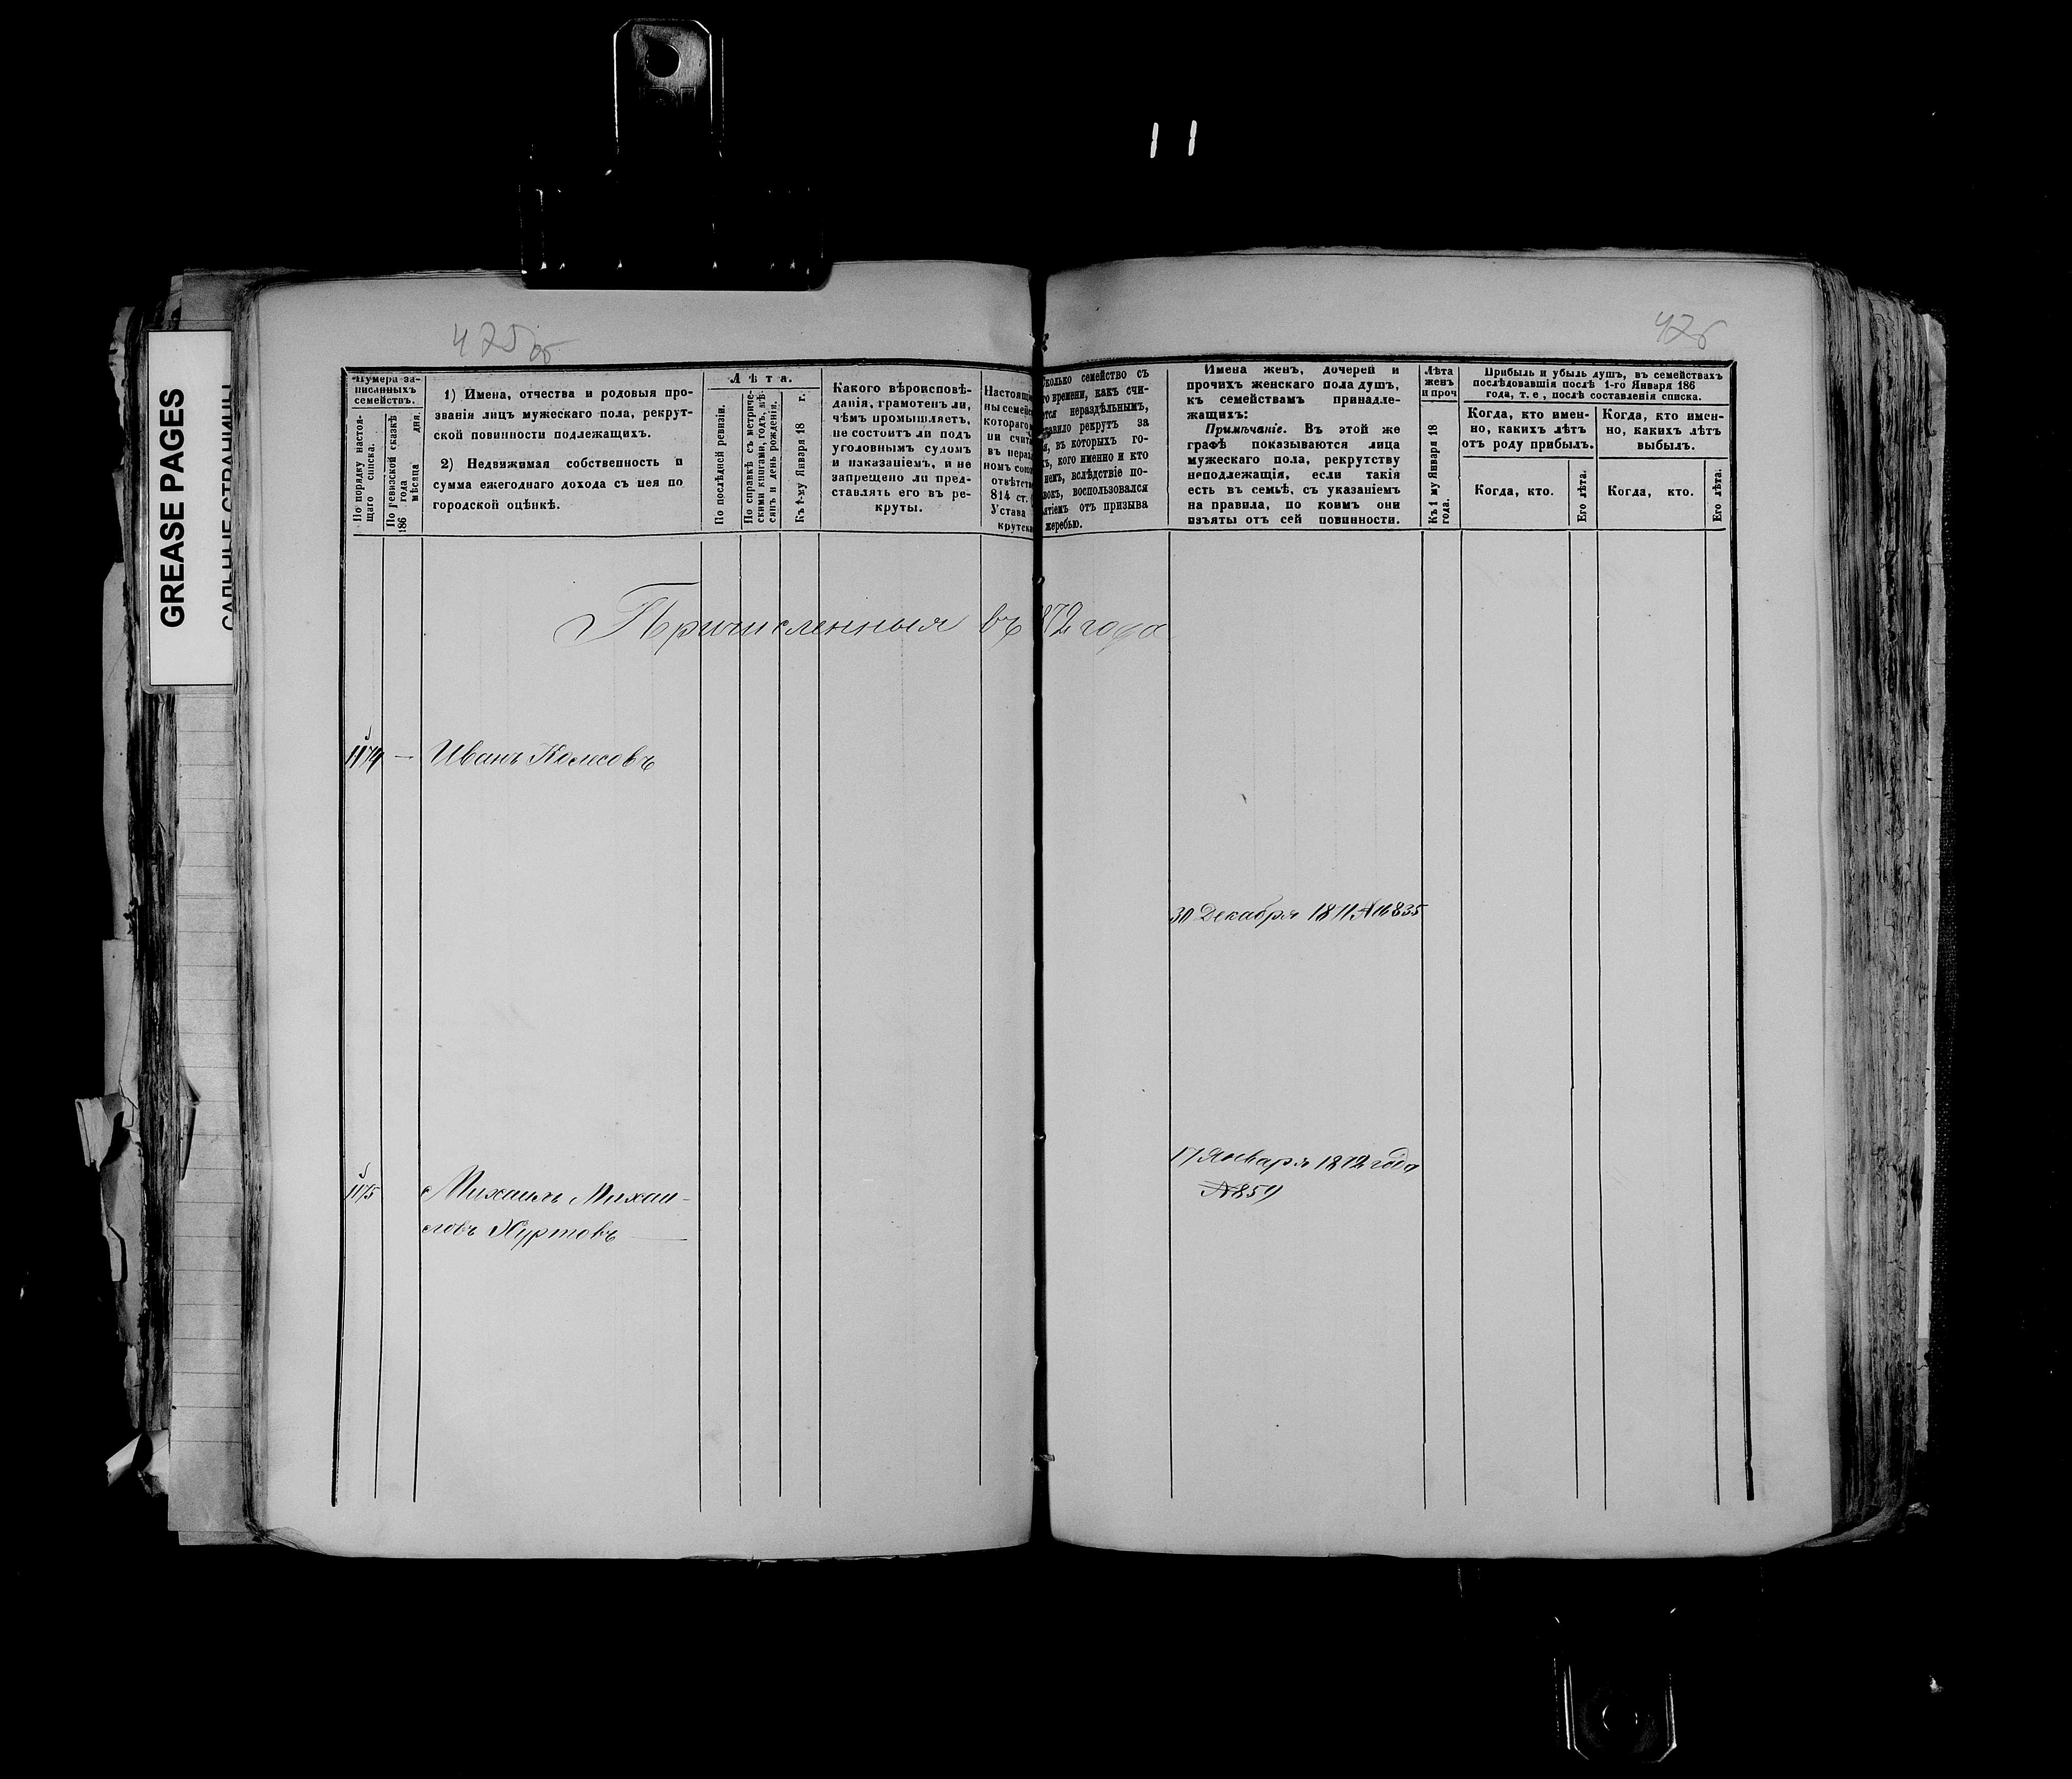 GREASE PAGES
475 об
476
Нумера за-
писанныхъ
семействъ.
По порядку настоя-
щаго списка.
По ревизской сказкѣ
186 года мѣсяца дня.
1) Имена, отчества и родовыя про-
званія лицъ мужескаго пола, рекрут-
ской повинности подлежащихъ.
2) Недвижимая собственность и
сумма ежегоднаго дохода съ нея по
городской оцѣнкѣ.
Лѣта.
По послѣдней ревизіи.
По справкѣ съ метриче-
скими книгами, годъ, мѣ-
сяцъ и день рожденія.
Къ 1-му Января 18 г.
Какого вѣроисповѣ-
данія, грамотенъ ли,
чѣмъ промышляетъ,
не состоитъ ли подъ
уголовнымъ судомъ
и наказаніемъ, и не
запрещено ли пред-
ставлять его въ ре-
круты.
Настоящ
ны семей
котораго
ни счит
въ нераз
номъ сою
отвѣтств
814 ст.
Устава
крутск
сколько семейство съ
го времени, какъ счи-
ется нераздѣльнымъ,
ставило рекрутъ за
я, въ которыхъ го-
хъ, кого именно и кто
немъ, вслѣдствіе по-
вокъ, воспользовался
ятіемъ отъ призыва
жеребью.
Имена женъ, дочерей и
прочихъ женскаго пола душъ,
къ семействамъ принадле-
жащихъ:
Примѣчаніе. Въ этой же
графѣ показываются лица
мужескаго пола, рекрутству
неподлежащія, если такія
есть въ семьѣ, съ указаніемъ
на правила, по коимъ они
изъяты отъ сей повинности.
Лѣта
женъ
и проч
Къ 1 му Января 18
года.
Прибыль и убыль душъ, въ семействахъ
послѣдовавшія послѣ 1-го Января 186
года, т. е., послѣ составленія списка.
Когда, кто имен-
но, какихъ лѣтъ
отъ роду прибылъ.
Когда, кто имен-
но, какихъ лѣтъ
выбылъ.
Когда, кто.
Его лѣта.
Когда, кто.
Его лѣта.
Причисленныя въ 1872 года
1174 — Иванъ Колисовъ
30 Декабря 1871 № 16835
17 Января 1872 года
№ 859
1175 Михаилъ Михаи-
ловъ Куртовъ —